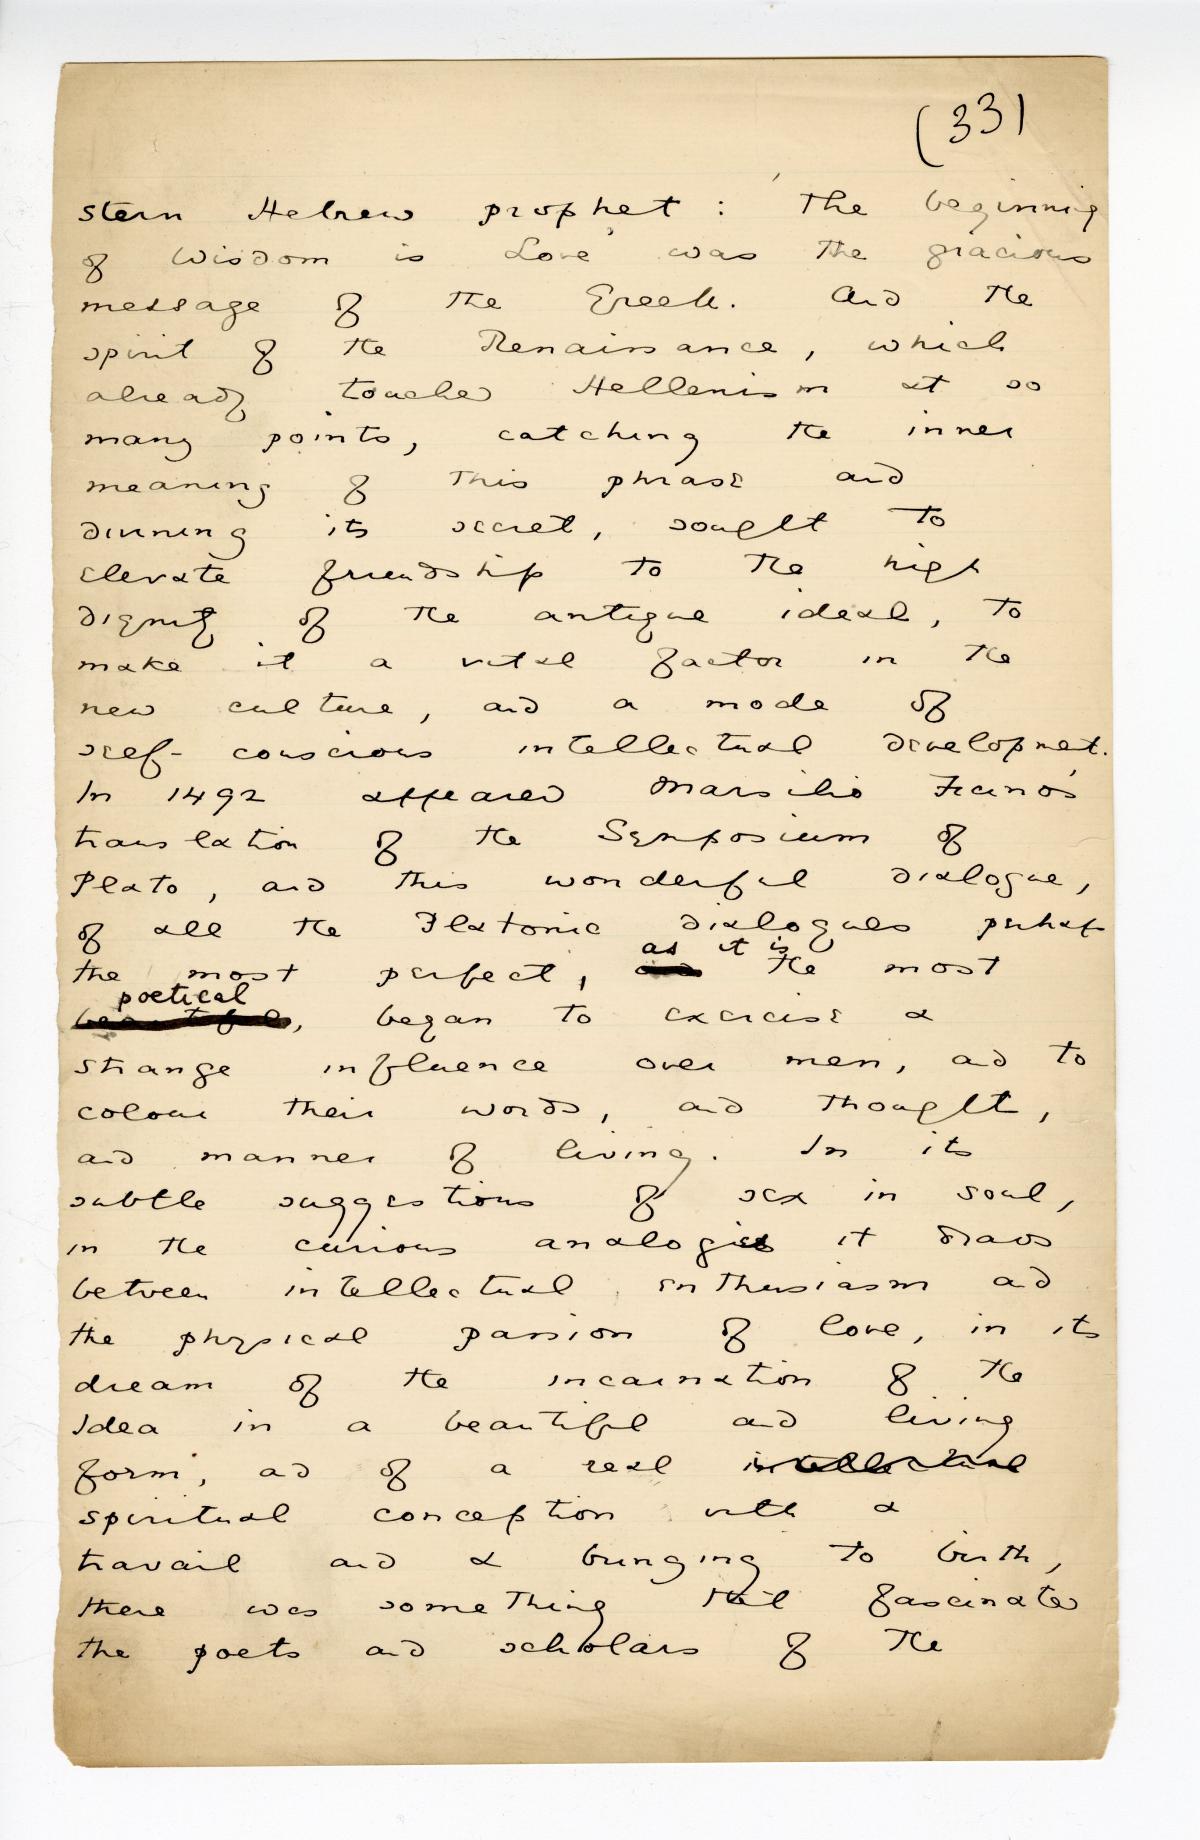 (33)
stern Hebrew prophet: 'The beginning
of Wisdom is Love' was the gracious
message of the Greek. And the
spirit of the Renaissance, which
already touched Hellenism at so
many points, catching the inner
meaning of this phrase and
divining its secret, sought to
elevate friendship to the high
dignity of the antique ideal, to
make it a vital factor in the
new culture, and a mode of
self-conscious intellectual development.
In 1492 appeared Marsilio Ficino's
translation of the Symposium of
Plato, and this wonderful dialogue,
of all the Platonic dialogues perhaps
as it is
the most perfect, the most
poetical
beautiful, began to exercise a
strange influence over men, and to
colour their words, and thought,
and manner of living. In its
subtle suggestions of sex in soul,
in the curious analogies it draws
between intellectual enthusiasm and
the physical passion of love, in its
dream of the incarnation of the
Idea in a beautiful and living
form, and of a real intellectual
spiritual conception with a
travail and a bringing to birth,
there was something that fascinated
the poets and scholars of the